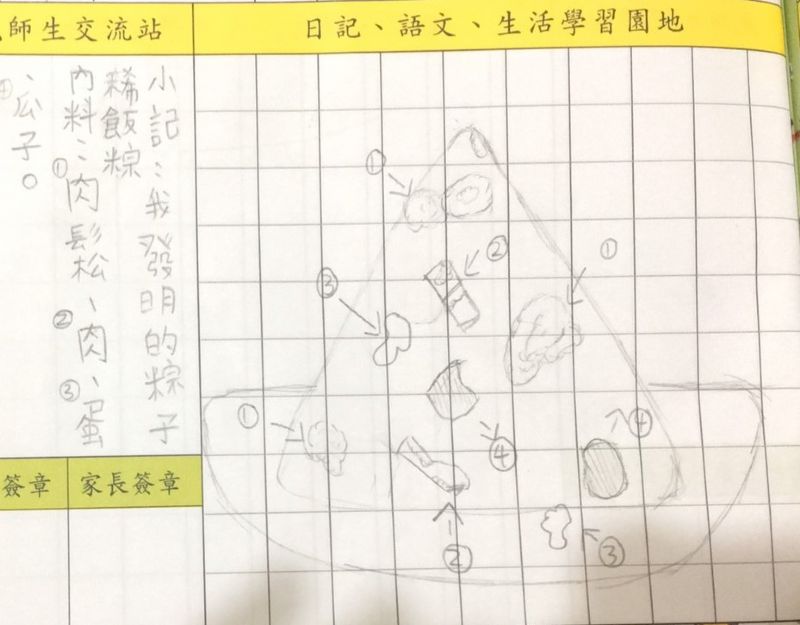 師生交流站
日記、語文、生活學習園地
小記:我發明的粽子
稀飯粽
內料:①肉鬆、②肉、③蛋
、④瓜子。
①
②
①
③
①
④
④
②
③
簽章
家長簽章